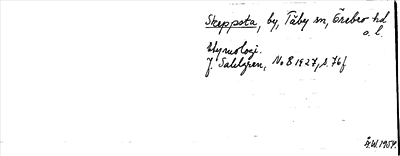 Skeppsta, by, Täby sn, Örebro hd
o. l.
Etymologi.
J. Sahlgren, No B 1927, s. 76 f
Å.W. 1954.